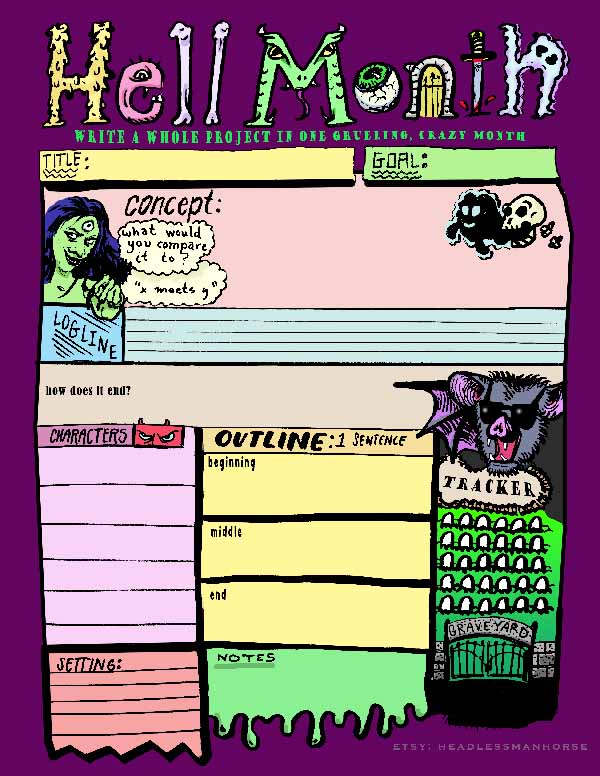 Hell Month
WRITE A WHOLE PROJECT IN ONE GRUELING, CRAZY MONTH
TITLE:
GOAL:
concept:
what would
you compare
it to?
"x meets y"
LOGLINE
how does it end?
CHARACTERS
OUTLINE: 1 SENTENCE
beginning
middle
end
TRACKER
GRAVEYARD
SETTING:
NOTES
ETSY: HEADLESSMANHORSE